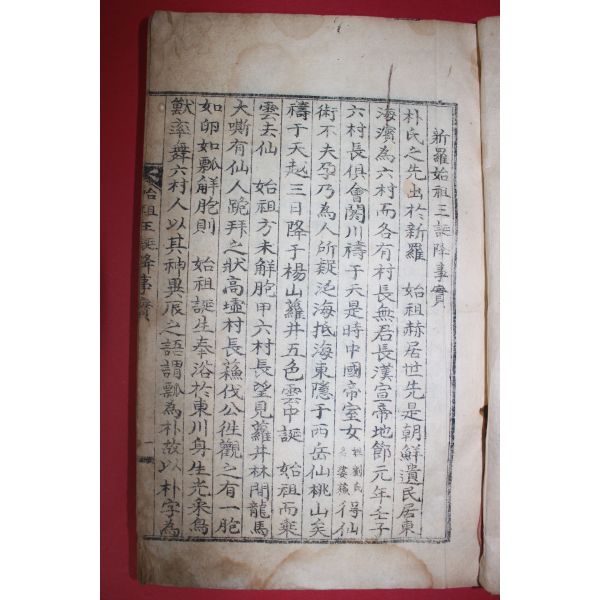 新羅始祖王誕降事實
朴氏之先出於新羅 始祖赫居世先是朝鮮遺民居東
海濱為六村而各有村長無君長漢宣帝地節元年壬子
六村長俱會閼川禱于天是時中國帝室女姓劉氏名婆蘇得仙
術不夫孕乃為人所疑泛海抵海東隱于西岳仙桃山矣
禱于天越三日降于楊山蘿井五色雲中誕 始祖而乘
雲去仙 始祖方未解胞甲六村長望見蘿井林間龍馬
大嘶有仙人跪拜之狀高墟村長蘇伐公徃觀之有一胞
如卵如瓢解胞則 始祖誕生奉浴於東川身生光采鳥
獸率舞六村人以其神異辰之語謂瓢為朴故以朴字為
始祖王誕降事實 一